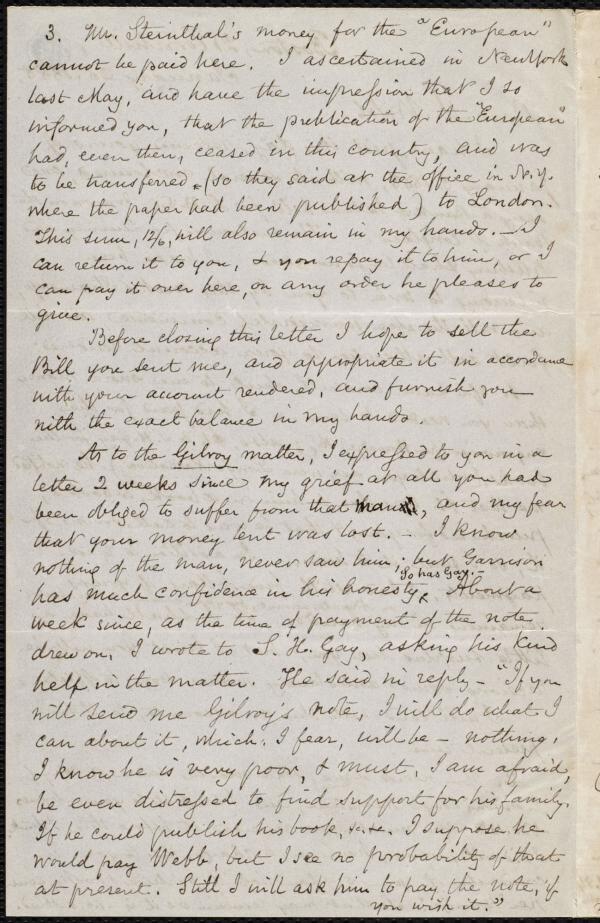 3. Mr. Steinthal's money for the "European"
cannot be paid here. I ascertained in New York
last May, and have the impression that I so
informed you, that the publication of the "European"
had, even then, ceased in this country, and was
to be transferred, (so they said at the office in N. Y.
where the paper had been published) to London.
This sum, 12/6, will also remain in my hands. — I
can return it to you, & you repay it to him, or I
can pay it over here, on any order he pleases to
give.
Before closing this letter I hope to sell the
Bill you sent me, and appropriate it in accordance
with your account rendered, and furnish you
with the exact balance in my hands.
As to the Gilroy matter, I expressed to you in a
letter 2 weeks since my grief at all you had
been obliged to suffer from that, and my fear
that your money lent was lost. — I know
nothing of the man, never saw him; but Garrison
So has Gay. —
has much confidence in his honesty. About a
week since, as the time of payment of the note
drew on, I wrote to S. H. Gay, asking his kind
help in the matter. He said in reply — "If you
will send me Gilroy's note, I will do what I
can about it, which, I fear, will be — nothing.
I know he is very poor, & must, I am afraid,
be even distressed to find support for his family.
If he could publish his book, &c. &c. I suppose he
would pay Webb, but I see no probability of that
at present. Still I will ask him to pay the note, if
you wish it."